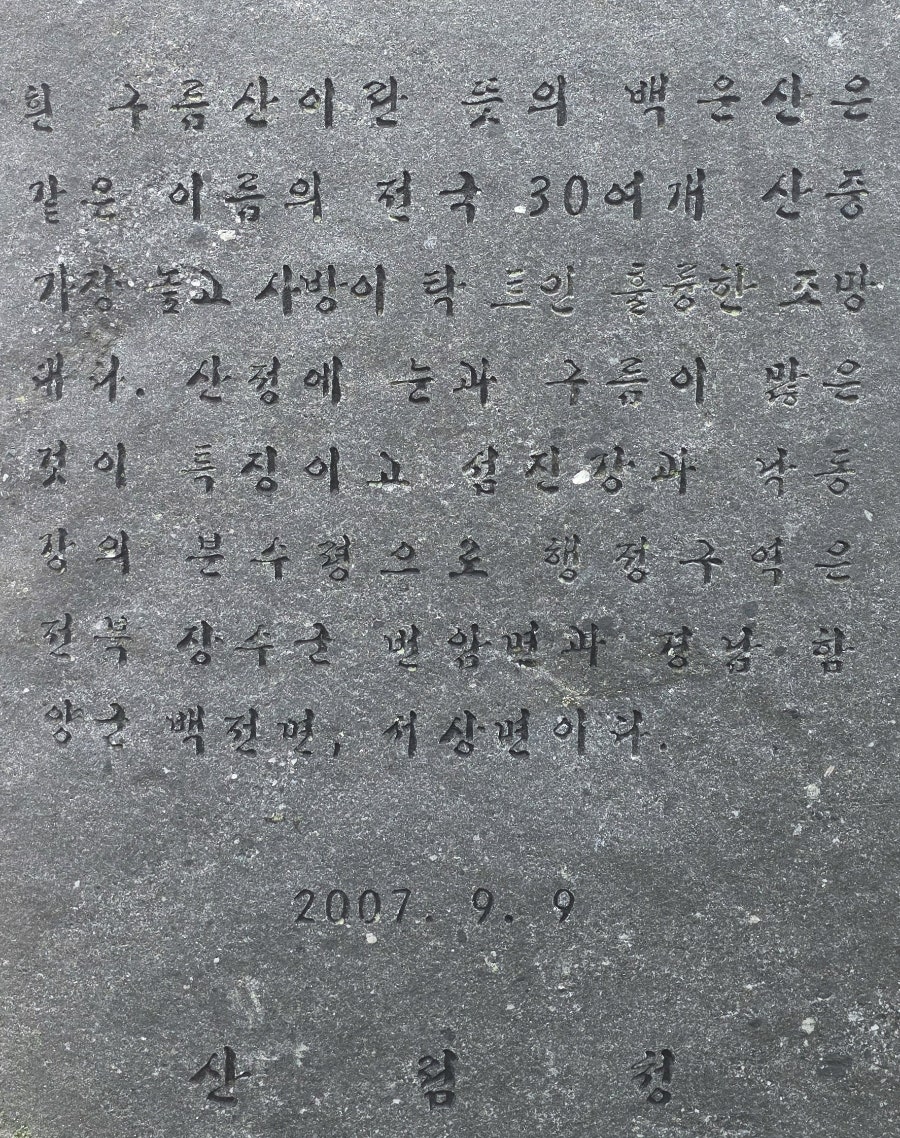 흰 구름산이란 뜻의 백운산은
같은 이름의 전국 30여개 산중
가장 높고 사방이 탁 트인 훌륭한 조망
대다. 산정에 눈과 구름이 많은
것이 특징이고 섬진강과 낙동
강의 분수령으로 행정구역은
전북 장수군 번암면과 경남 함
양군 백전면, 서상면이다.
2007. 9. 9
산림청